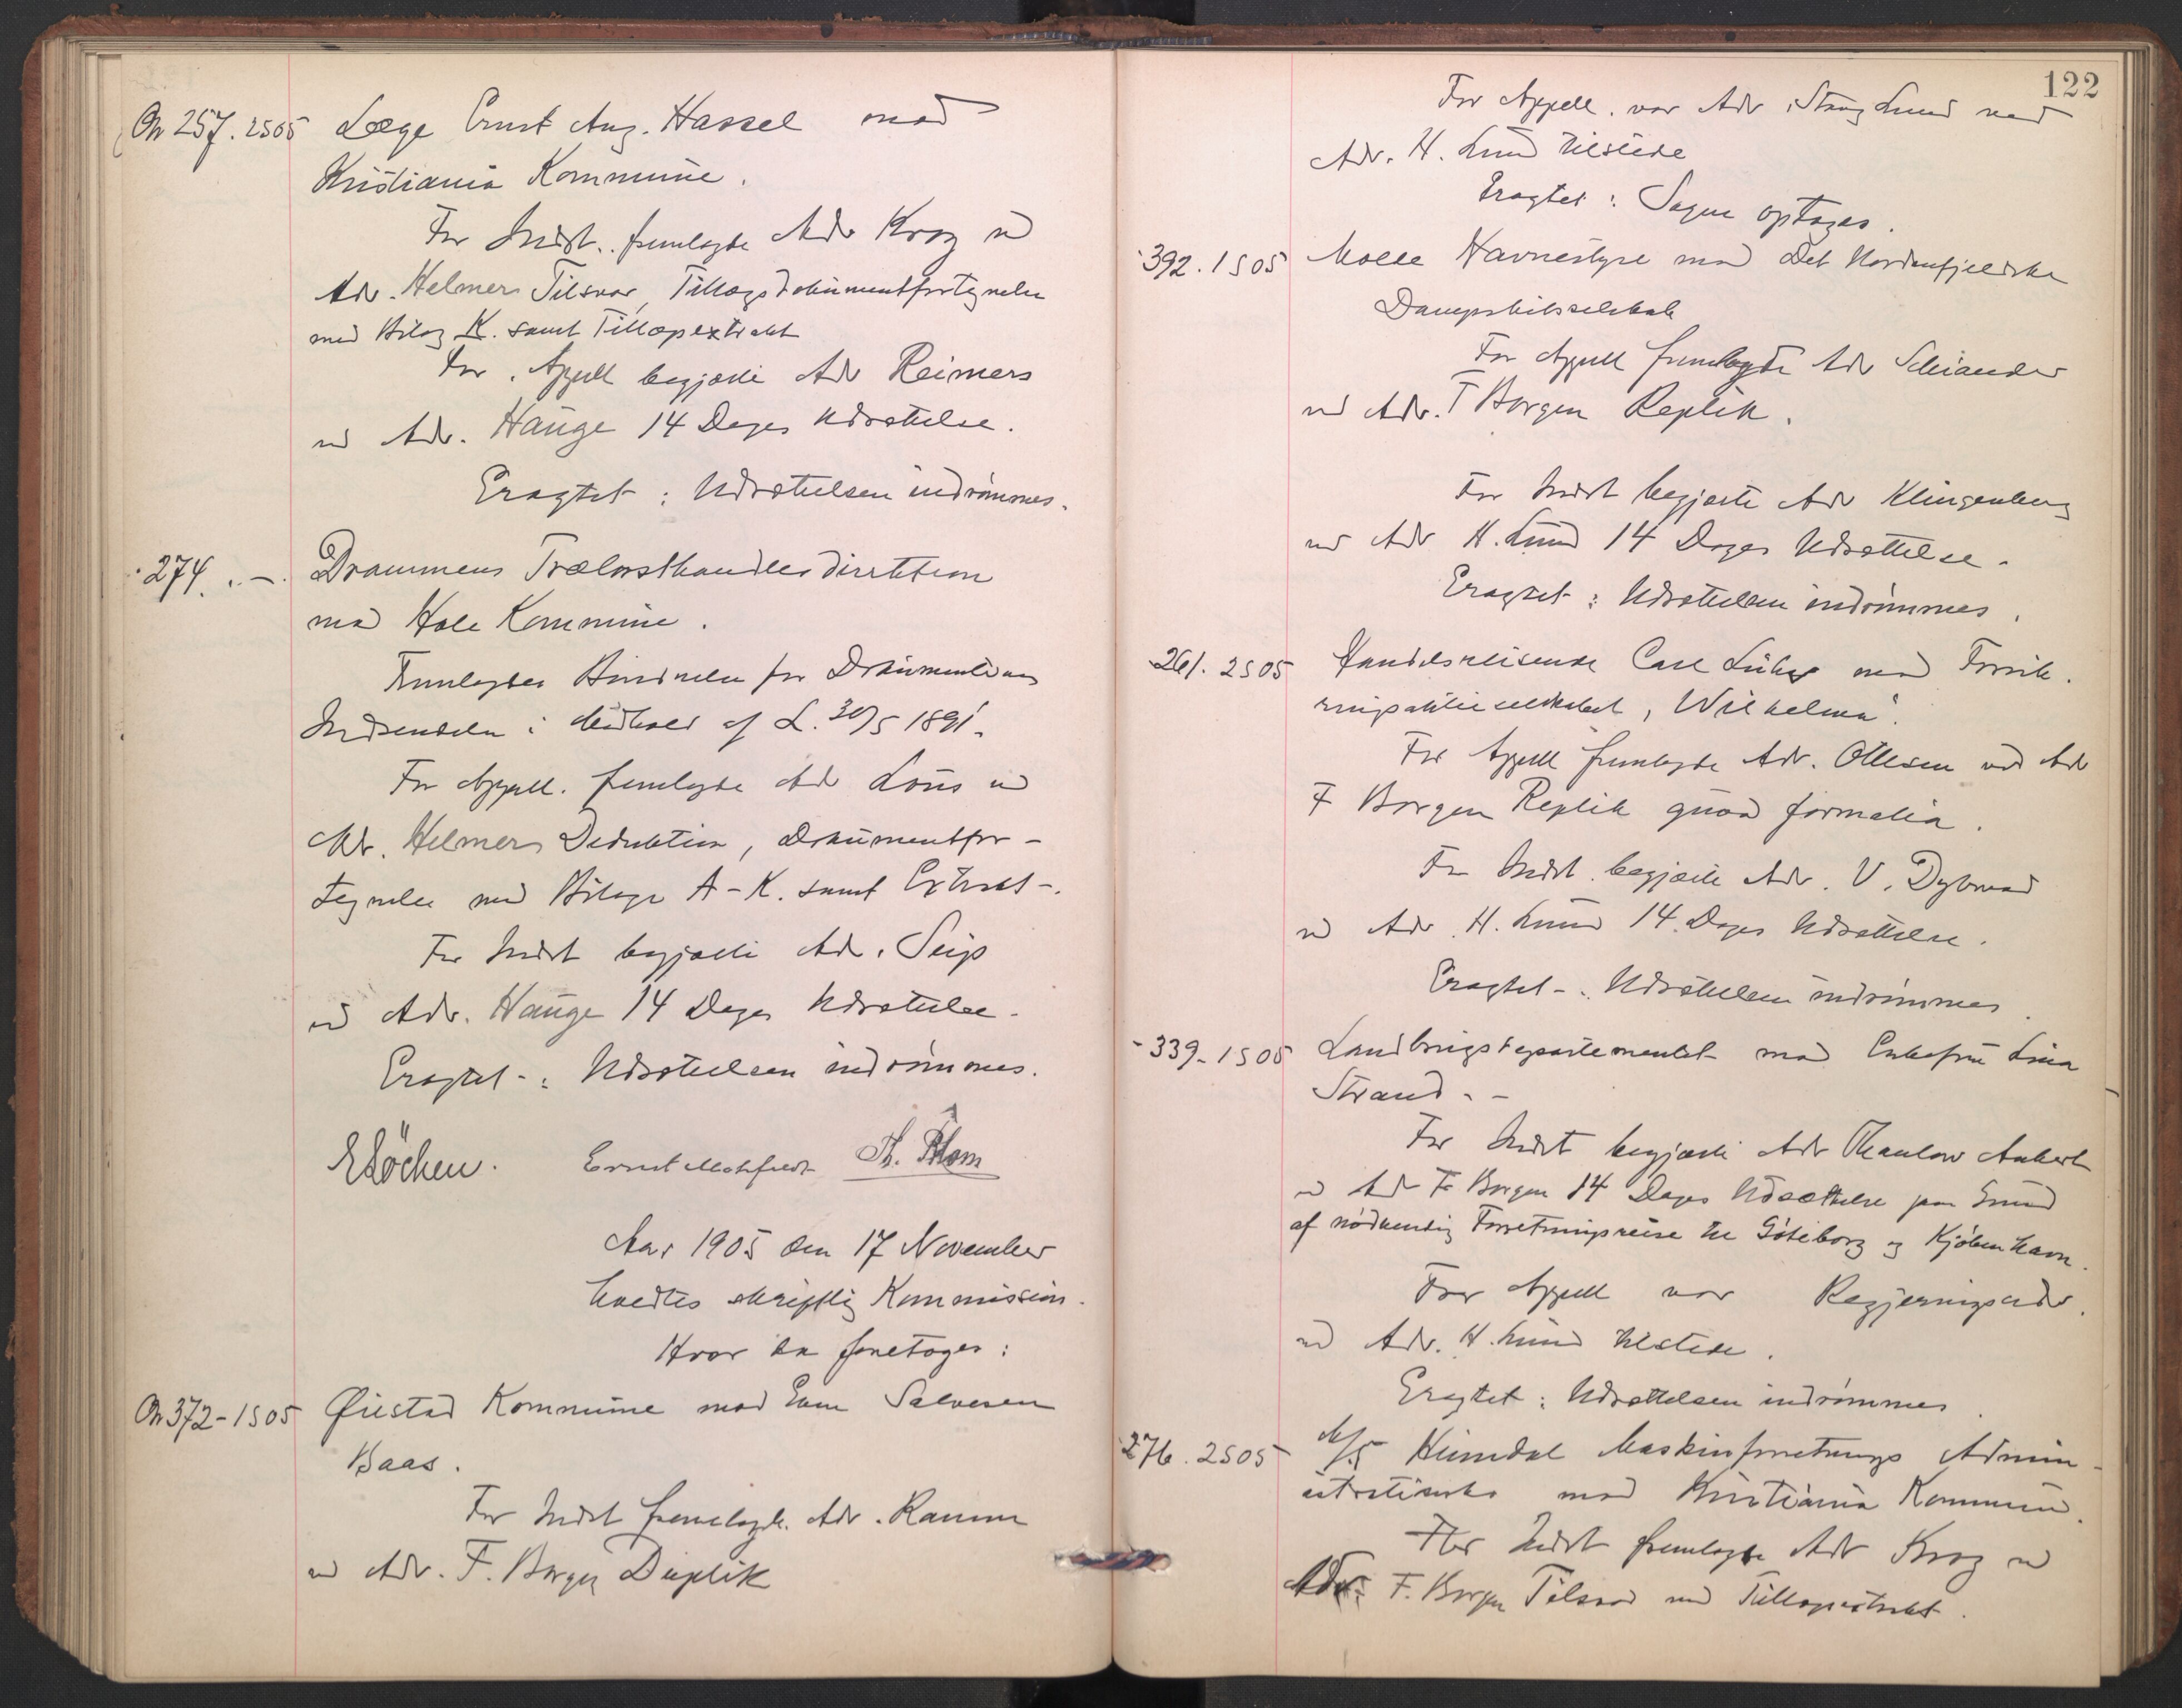 On 257. 2S05 Læge Ernst Aug. Hassel mod
Kristiania Kommune.
For Indst. fremlagde Adv Krog v
Adv. Helmers Tilsvar, Tillægsdokumentfortegnelse
med Bilag K. samt Tillægsextrakt
For Appell begjærte Adv Reimers
v Adv. Hauge 14 Dages Udsættelse.
Eragtet: Udsættelsen indrømmes.
" 274. " — Drammens Trælasthandlerdirektion
mod Hole Kommune.
Fremlagdes for Dokumenternes
Indsendelse i Medhold af L. 30/5 1891.
For Appell. fremlagde Adv Lous v
Adv. Helmers Deduktion, Dokumentfor-
tegnelse med Bilage A-K. samt Extrakt.
For Indst begjærte Adv. Seip
v Adv. Hauge 14 Dages Udsættelse.
Eragtet: Udsættelsen indrømmes.
E Løchen. Ernst Motzfeldt Th. Blom
Aar 1905 den 17 November
holdtes skriftlig Kommission.
Hvor da foretoges:
On 372-1S05 Øiestad Kommune mod Even Salvesen
Baas.
For Indst fremlagde Adv. Ramm
v Adv. F. Borgen Duplik
122
For Appell. var Adv. Stang Lund ved
Adv. H. Lund tilstede
Eragtet: Sagen optages.
" 392. 1S05 Molde Havnestyre mod Det Nordenfjeldske
Dampskibsselskab
For Appell fremlagde Adv Schiander
ved Adv. F Borgen Replik.
For Indst begjærte Adv Klingenberg
ved Adv H. Lund 14 Dages Udsættelse.
Eragtet: Udsættelsen indrømmes.
" 261. 2S05 Handelsreisende Carl mod Forsik-
ringsaktieselskabet "Wilhelma".
For Appell fremlagde Adv. Ottesen ved Adv
F Borgen Replik quoad formalia.
For Indst. begjærte Adv. V. Dybwad
v Adv. H. Lund 14 Dages Udsættelse.
Eragtet: Udsættelsen indrømmes
" 339-1S05 Landbrugsdepartementet mod Enkefru Lina
Strand.
For Indst begjærte Adv Thaulow Aubert
v Adv F Borgen 14 Dages Udsættelse paa Grund
af nødvendig Forretningsreise til Göteborg og Kjøbenhavn.
For Appell var Regjeringsadv.
v Adv. H. Lund tilstede.
Eragtet: Udsættelsen indrømmes.
" 276. 2S05 A/S Heimdal Maskinforretnings Admin-
istrationsbo mod Kristiania Kommune.
For Indst fremlagde Adv Krog v
Adv. F. Borgen Tilsvar med Tillægsextrakt.